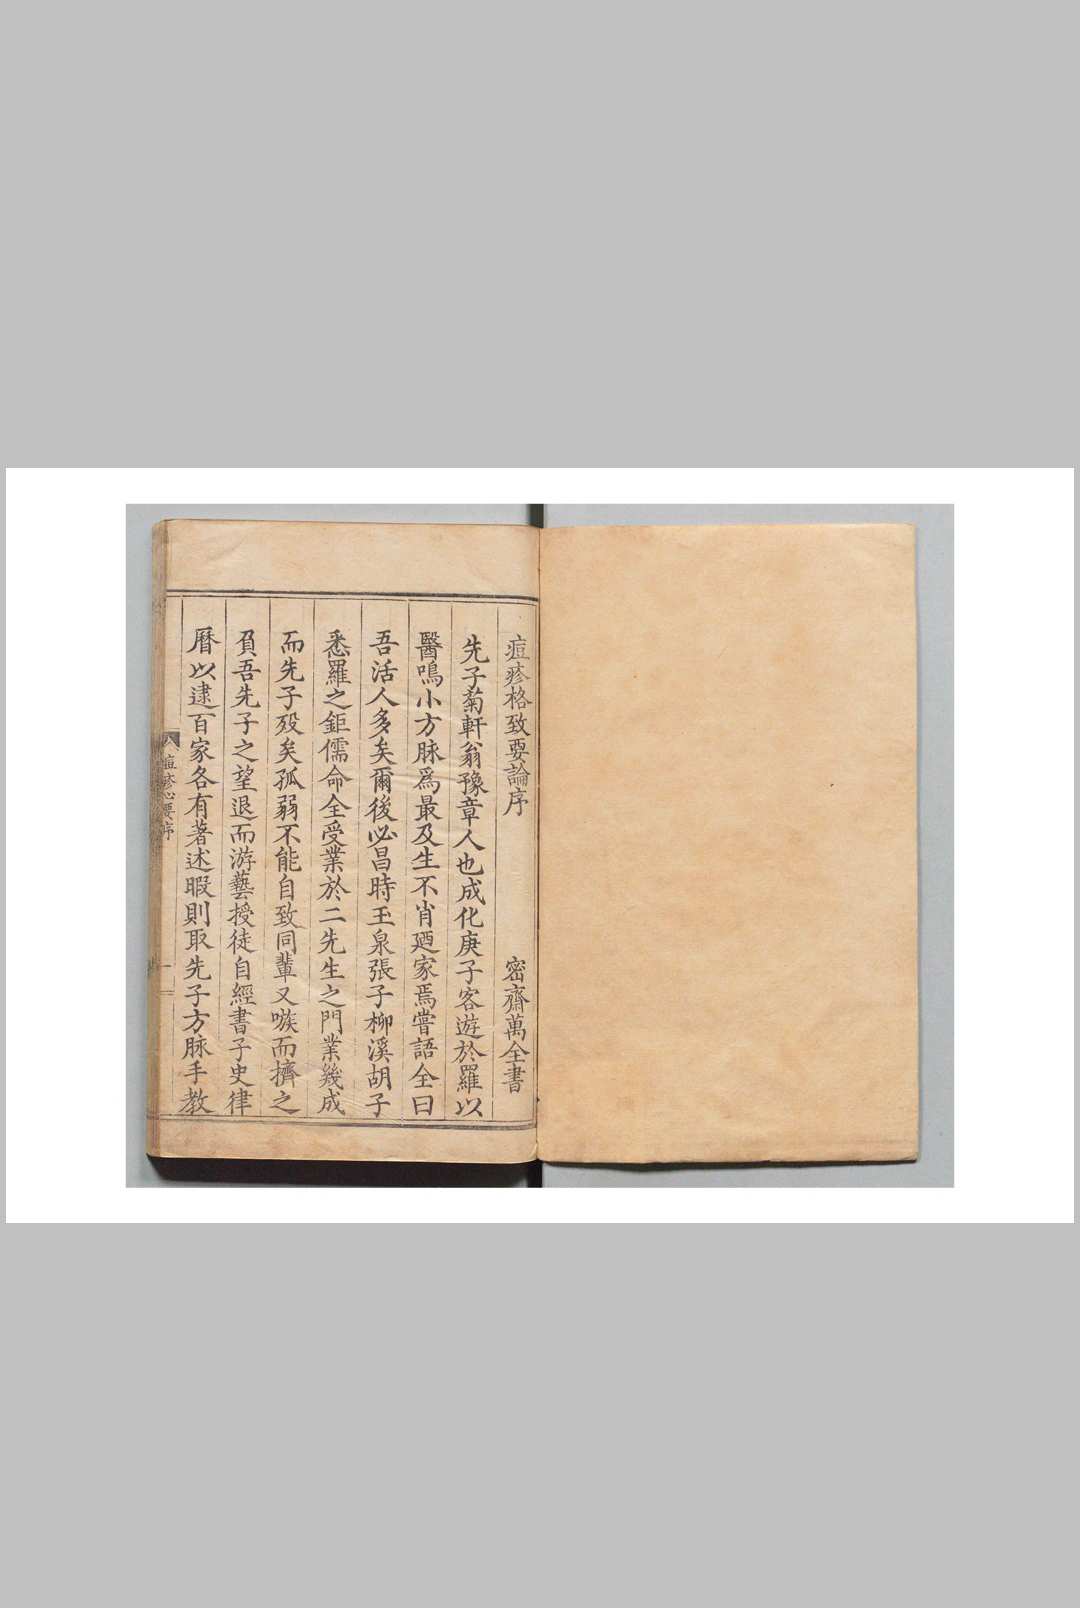 痘疹格致要論序 密齋萬全書
先子菊軒翁豫章人也成化庚子客遊於羅以
醫鳴小方脉爲最及生不肖廼家焉嘗語全曰
吾活人多矣爾後必昌時玉泉張子柳溪胡子
悉羅之鉅儒命全受業於二先生之門業幾成
而先子殁矣孤弱不能自致同輩又嫉而擠之
負吾先子之望退而游藝授徒自經書子史律
曆以逮百家各有著述暇則取先子方脉手教
痘疹心要序
一